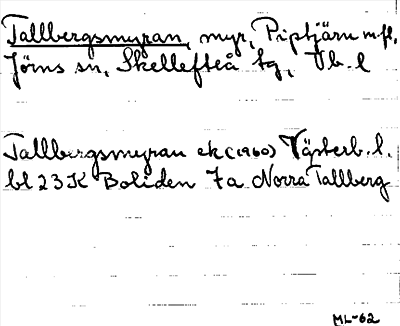 Tallbergsmyran, myr, Piptjärn mfl.
Jörns sn, Skellefteå tg, Vb. l
Tallbergsmyran ek (1960) Västerb. l.
bl 23 K Boliden 7a Norra Tallberg
ML-62